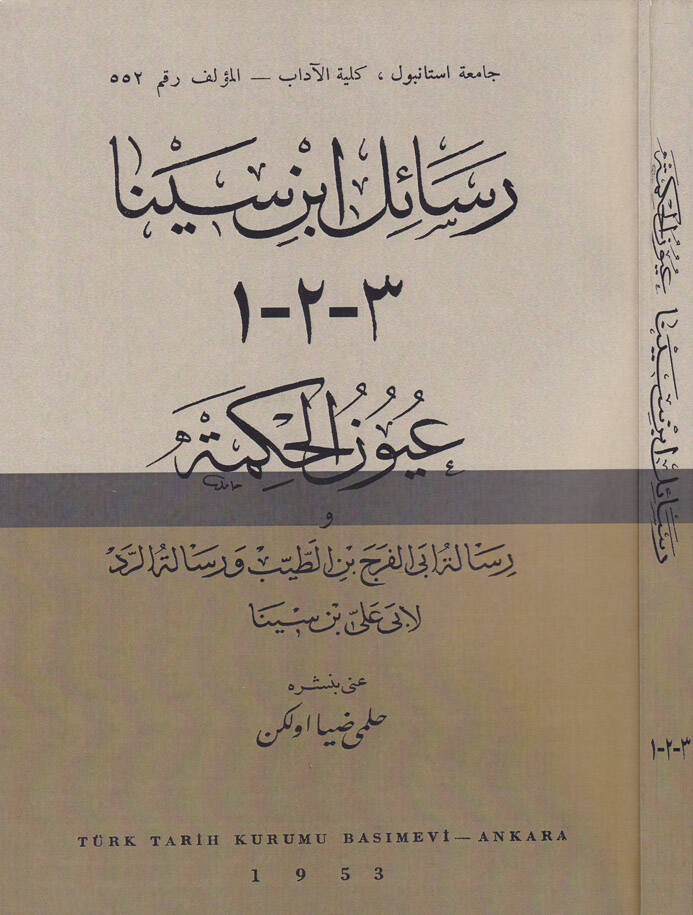 جامعة استانبول ، كلية الآداب — المؤلف رقم ٥٥٢
رَسَائِل ابْنِ سِيْنَا
١-٢-٣
عُيُونُ الْحِكْمَةِ
و
رِسَالةُ ابى الفَرَجَ بْنِ الطَّيِّبْ وَرِسَالةُ الرَّدْ
لابىَ عَلىّ بْنِ سِينَا
عنى بنشره
حلمى ضيا اولكن
TÜRK TARİH KURUMU BASIMEVİ — ANKARA
1953
رسَائل ابْن سِيْنَا عُيُونُ الْحِكْمَة
١-٢-٣